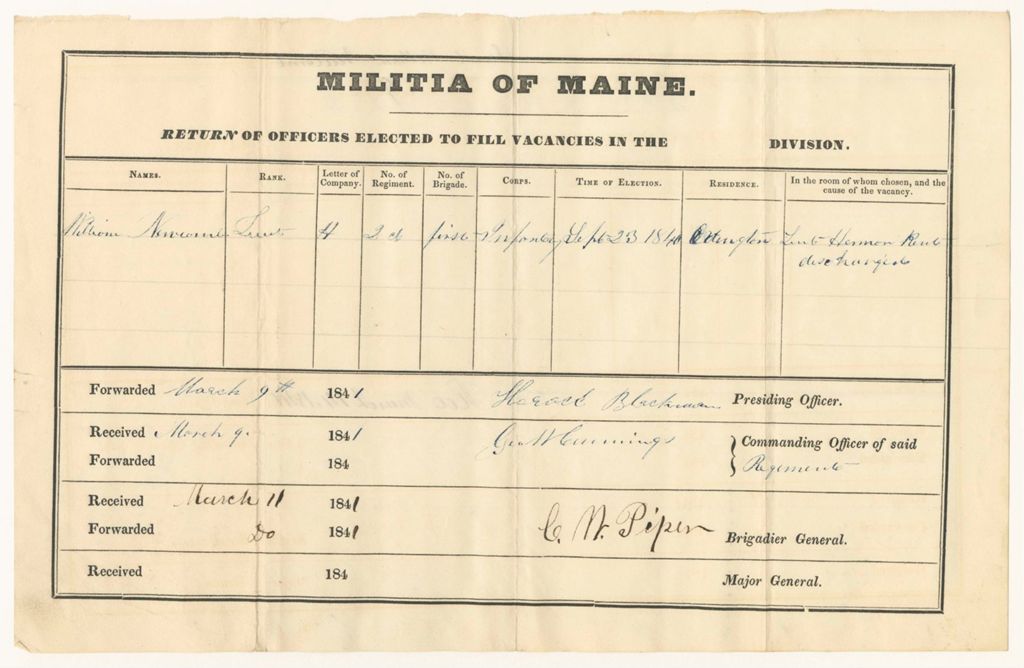 MILITIA OF MAINE.
RETURN OF OFFICERS ELECTED TO FILL VACANCIES IN THE DIVISION.
NAMES. RANK. Letter of Company. No. of Regiment. No. of Brigade. CORPS. TIME OF ELECTION. RESIDENCE. In the room of whom chosen, and the cause of the vacancy.
William Newcomb Lieut H 2d first Infantry Sept 23 1840 Eddington Lieut Hermon
discharged
Forwarded March 9th 1841 Blackman Presiding Officer.
Received March 9. 1841 Geo W Cummings Commanding Officer of said
Forwarded 184 Regiment
Received March 11 1841
Forwarded Do 1841 C. W. Piper Brigadier General.
Received 184 Major General.